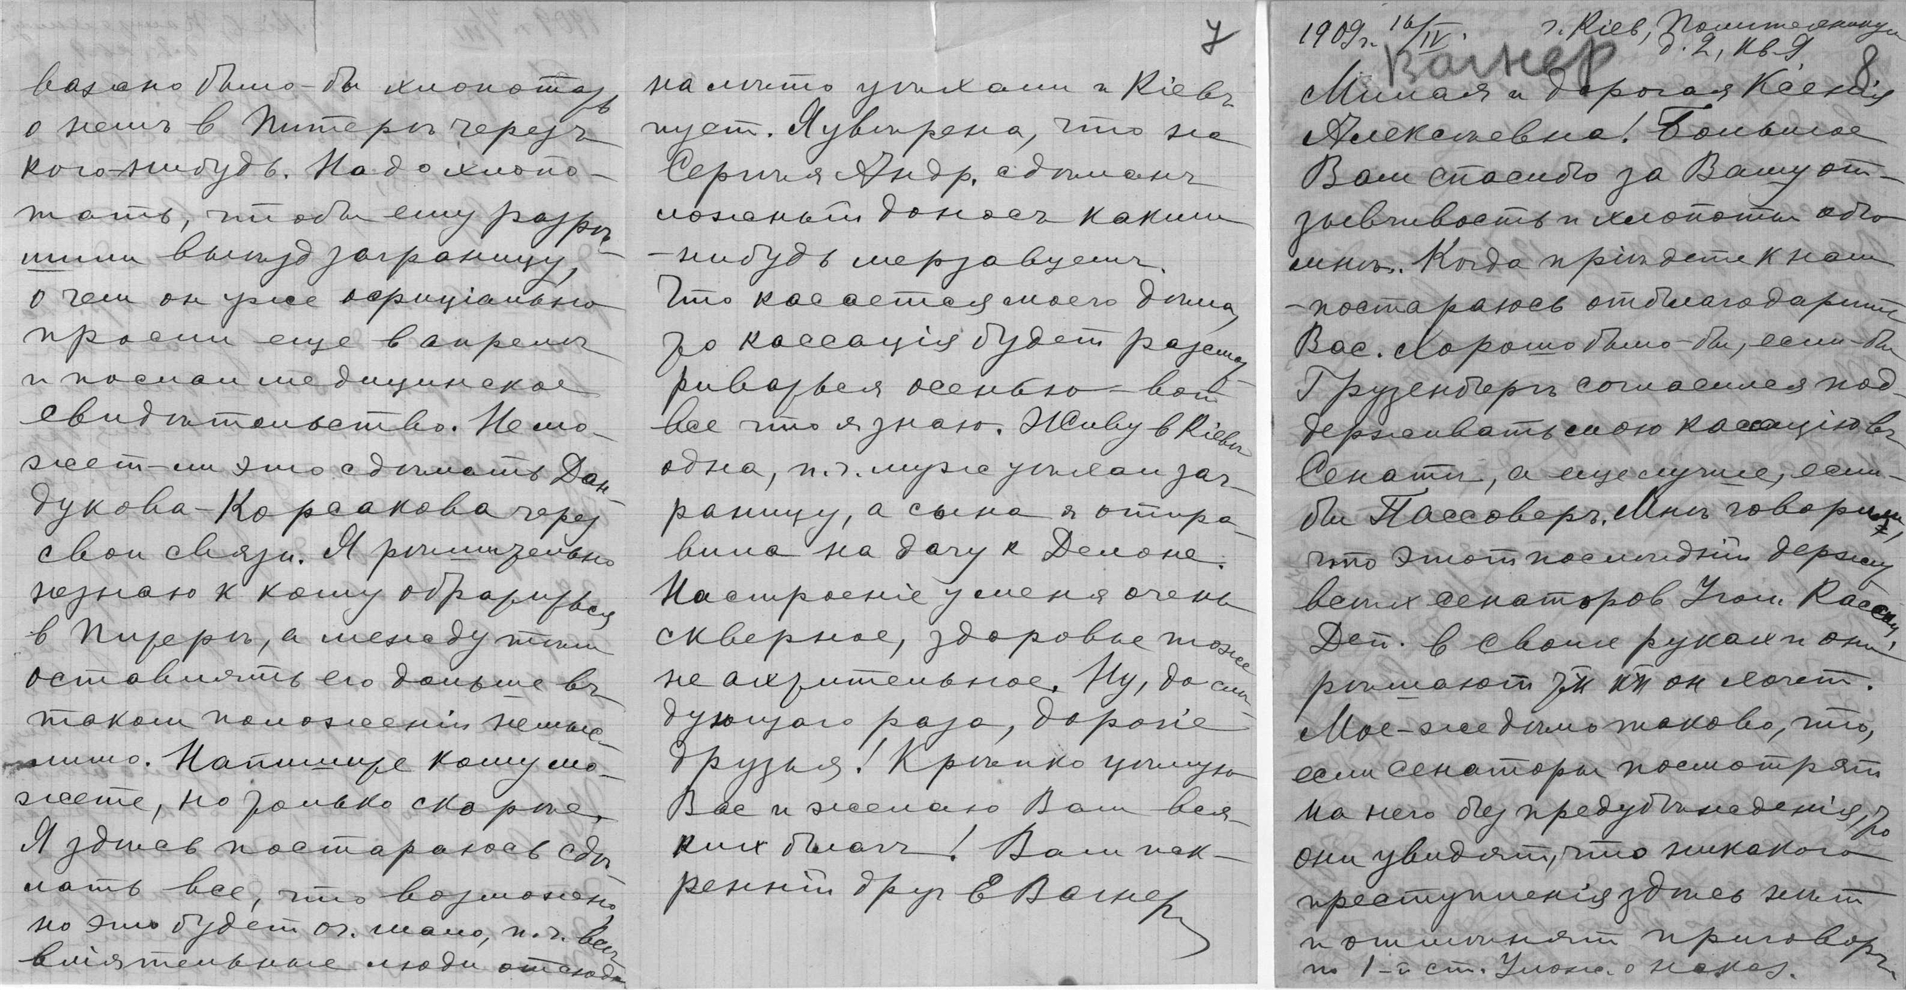 важно было-бы хлопотать
о немъ в Питерѣ черезъ
кого-нибудь. Надо хлопо-
тать, чтобы ему разрѣ-
шили выѣзд заграницу,
о чем он уже офиціально
просил еще в апрелѣ
и послал медицинское
свидѣтельство. Не мо-
жет-ли это сдѣлать Дон-
дукова-Корсакова через
свои связи. Я рѣшительно
незнаю к кому обратиться
в Питерѣ, а между тѣм
оставлять его дольше въ
таком положеніи немыс-
лимо. Напишите кому мо-
жете, но только скорѣе.
Я здѣсь постараюсь сдѣ-
лать все, что возможно,
но это будет оч. мало, п.ч. всѣ
вліятельные люди отсюда
7
на лѣто уѣхали и Кіевъ
пуст. Я увѣрена, что на
Сергѣя Андр. сдѣланъ
ложный доносъ каким
-нибудь мерзавцемъ.
Что касается моего дѣла,
то кассація будет разсмат-
риваться осенью – вот
все что я знаю. Живу в Кіевѣ
одна, п.ч. муж уѣхал заг-
раницу, а сына я отпра-
вила на дачу к Делоне.
Настроеніе у меня очень
скверное, здоровье тоже
не ахтительное. Ну, до слѣ-
дующаго раза, дорогіе
друзья! Крѣпко цѣлую
Вас и желаю Вам вся-
ких благъ! Вам иск-
ренній друг Е Вагнеръ
1909 г. 16/IV. г. Кіев, Политехникум
д. 2, кв. 9.
Вагнер 8
Милая и дорогая Ксенія
Алексѣевна! Большое
Вам спасибо за Вашу от-
зывчивость и хлопоты обо
мнѣ. Когда пріѣдете к нам
-постараюсь отблагодарить
Вас. Хорошо было-бы, если-бы
Грузенберг согласился под-
держивать мою кассацію въ
Сенатѣ, а еще лучше, если-
бы Пассоверъ. Мнѣ говорили,
что этот послѣдній держит
всѣх сенаторов Угол. Кассац.
Деп. в своих руках и они
рѣшают тк кк он хочет.
Мое-же дѣло таково, что,
если сенаторы посмотрят
на него без предубѣжденія, то
они увидят, что никакого
преступленія здѣсь нѣт
и отмѣнят приговоръ
по 1-й ст. Улож. о наказ.